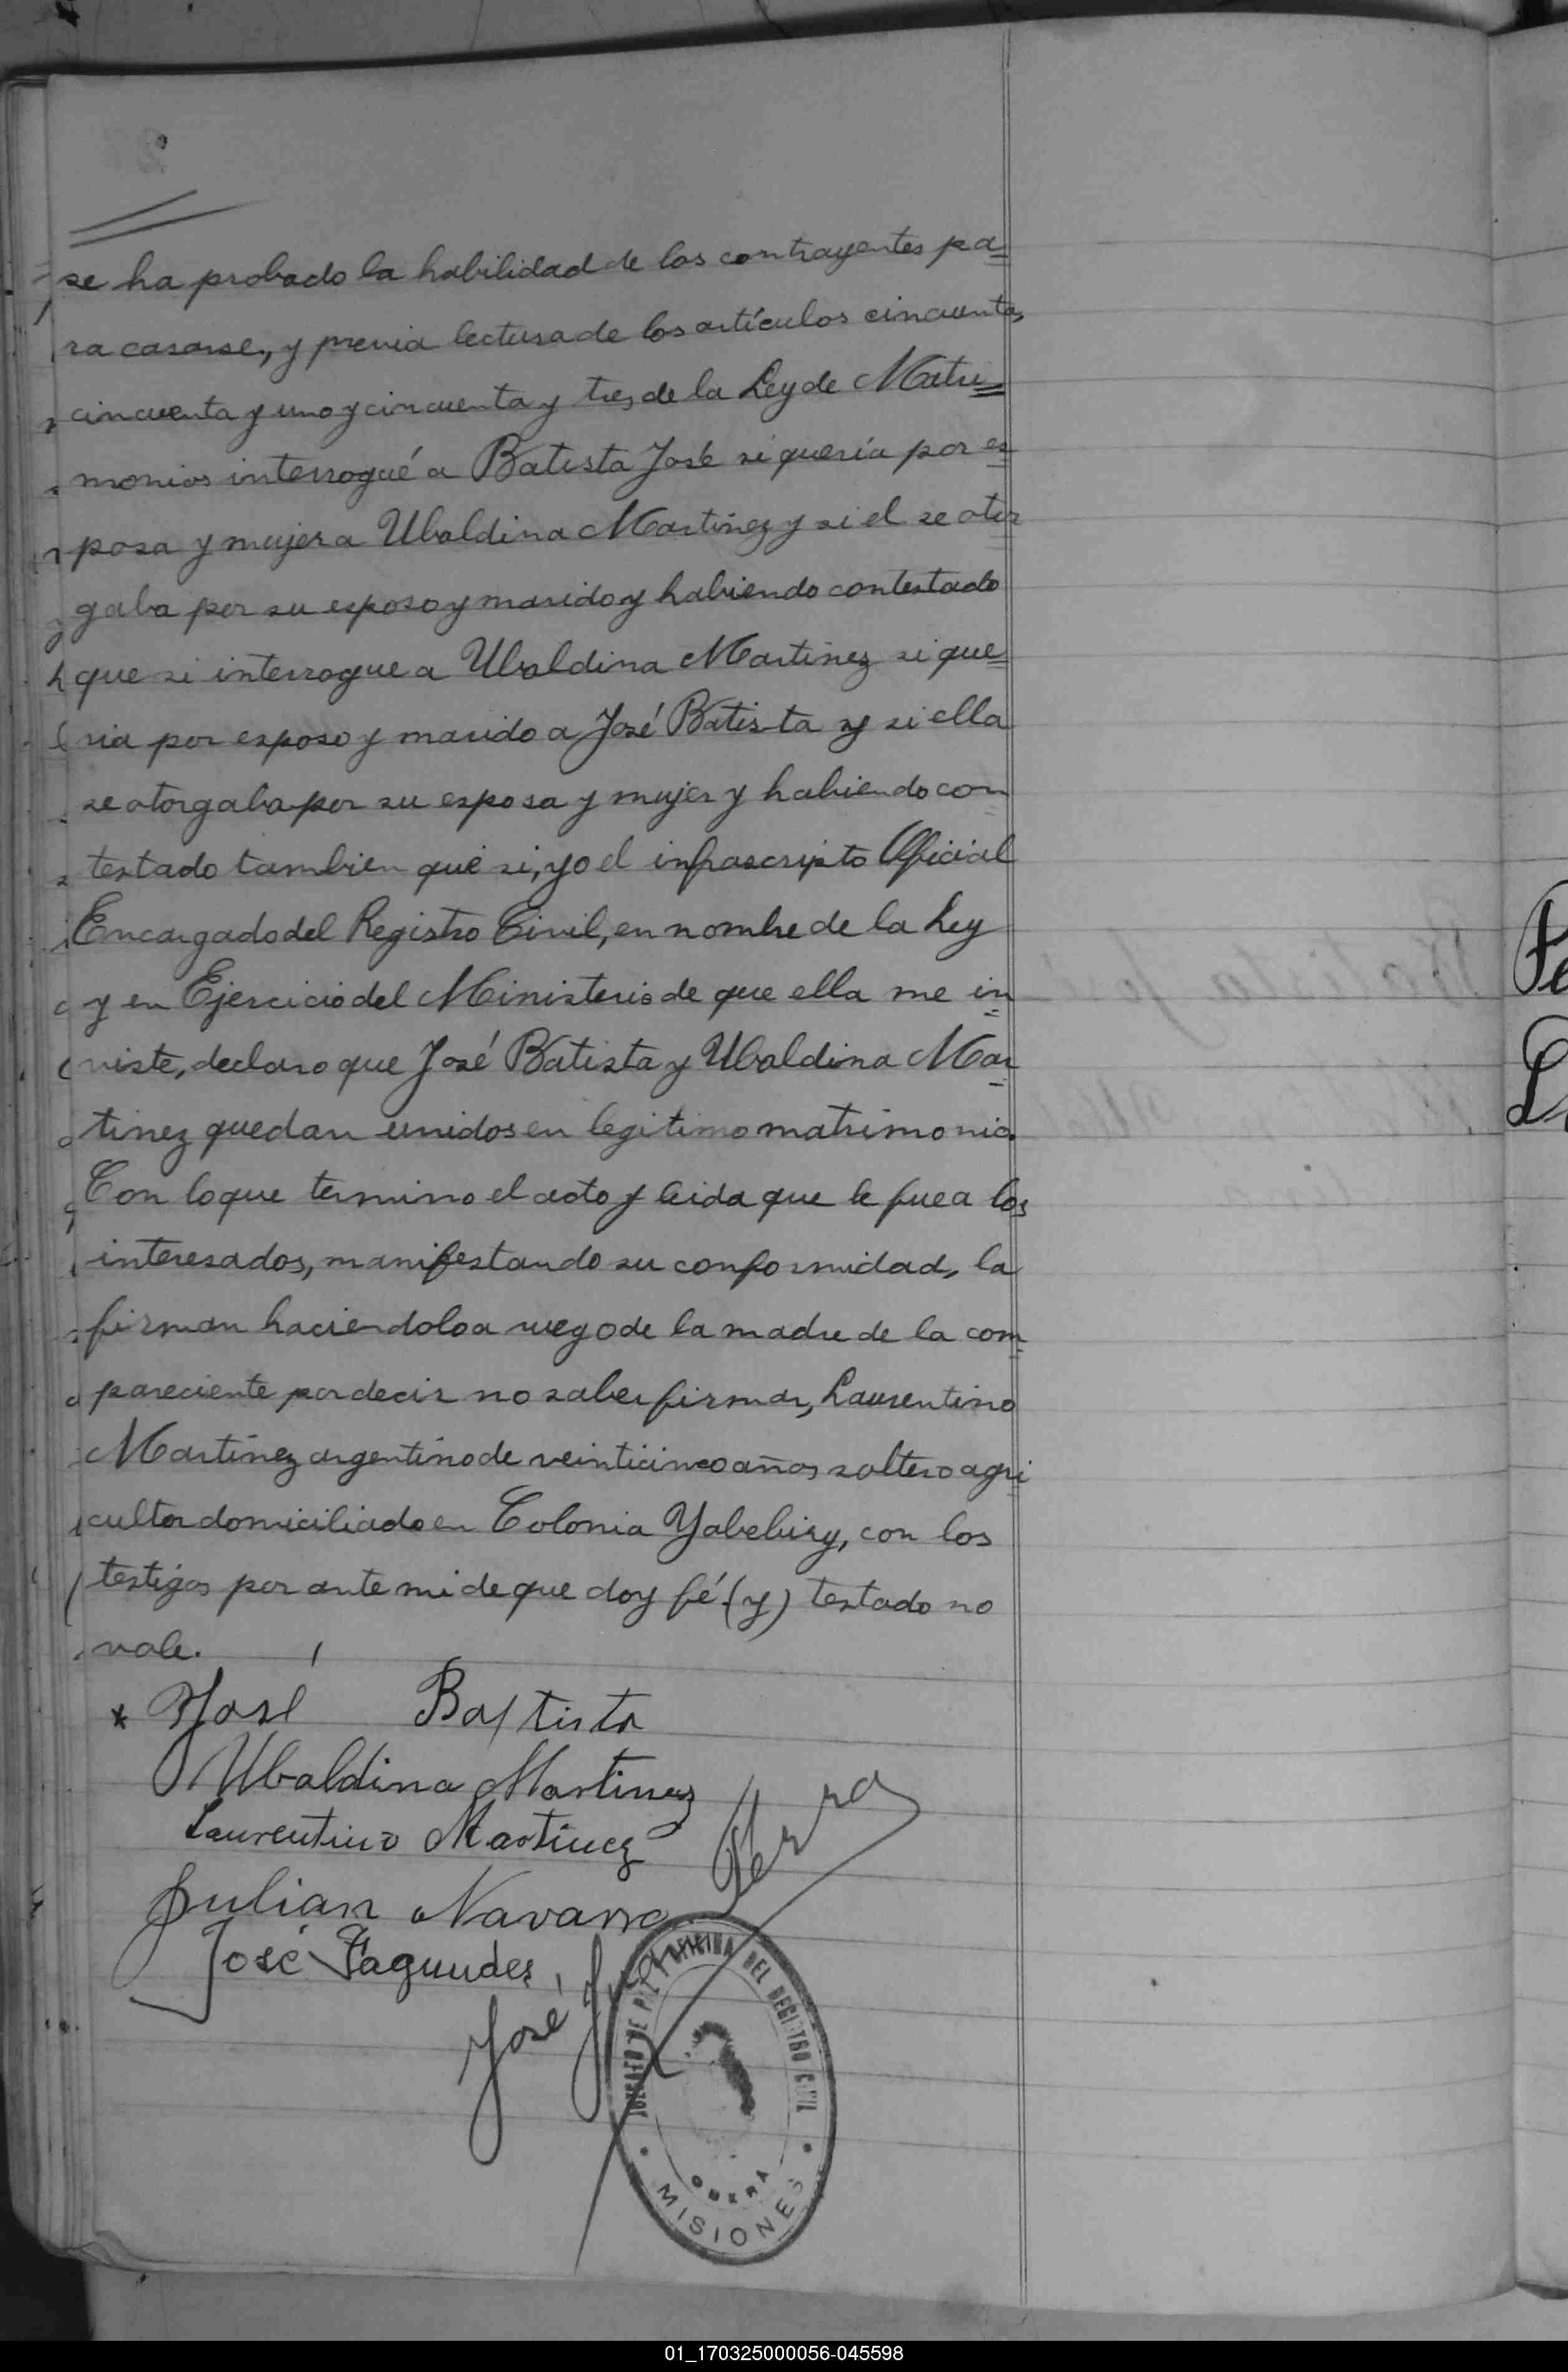 se ha probado la habilidad de los contrayentes pa=
ra casarse, y previa lectura de los artículos cincuenta,
cincuenta y uno y cincuenta y tres de la Ley de Matri=
monios interrogué a Batista José si quería por es=
posa y mujer a Ubaldina Martínez y si el se otor
gaba por su esposo y marido y habiendo contestado
que si interrogue a Ubaldina Martinez si que=
ria por esposo y marido a José Batista y si ella
se otorgaba por su esposa y mujer y habiendo con
testado tambien que si, yo el infrascripto Oficial
Encargado del Registro Civil, en nombre de la Ley
y en Ejercicio del Ministerio de que ella me in=
viste, declaro que José Batista y Ubaldina Mar=
tinez quedan unidos en legitimo matrimonio.
Con lo que termino el acto y leida que le fue a los
interesados, manifestando su conformidad, la
firman haciendolo a ruego de la madre de la com=
pareciente por decir no saber firmar, Laurentino
Martínez argentino de veinticinco años soltero agri
cultor domiciliado en Colonia Yabebiry, con los
testigos por ante mi de que doy fé. (y) testado no
vale.
* José Baptista
Ubaldina Martinez
Laurentino Martinez
Julian Navarro
José Fagundes
José Juan
OFICINA DEL REGISTRO CIVIL
OBERA
MISIONES
01_170325000056-045598